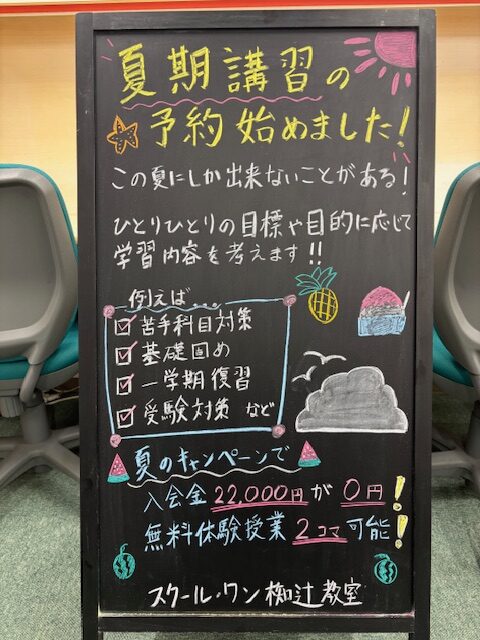 夏期講習の
予約始めました!
この夏にしか出来ないことがある!
ひとりひとりの目標や目的に応じて
学習内容を考えます!!
例えば...
苦手科目対策
基礎固め
一学期復習
受験対策 など
夏のキャンペーンで
入会金 22,000円が 0円!
無料体験授業 2コマ可能!
スクール・ワン 椥辻教室